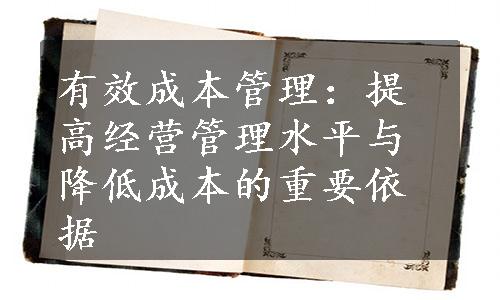 有效成本管理：提
高经营管理水平与
降低成本的重要依
据